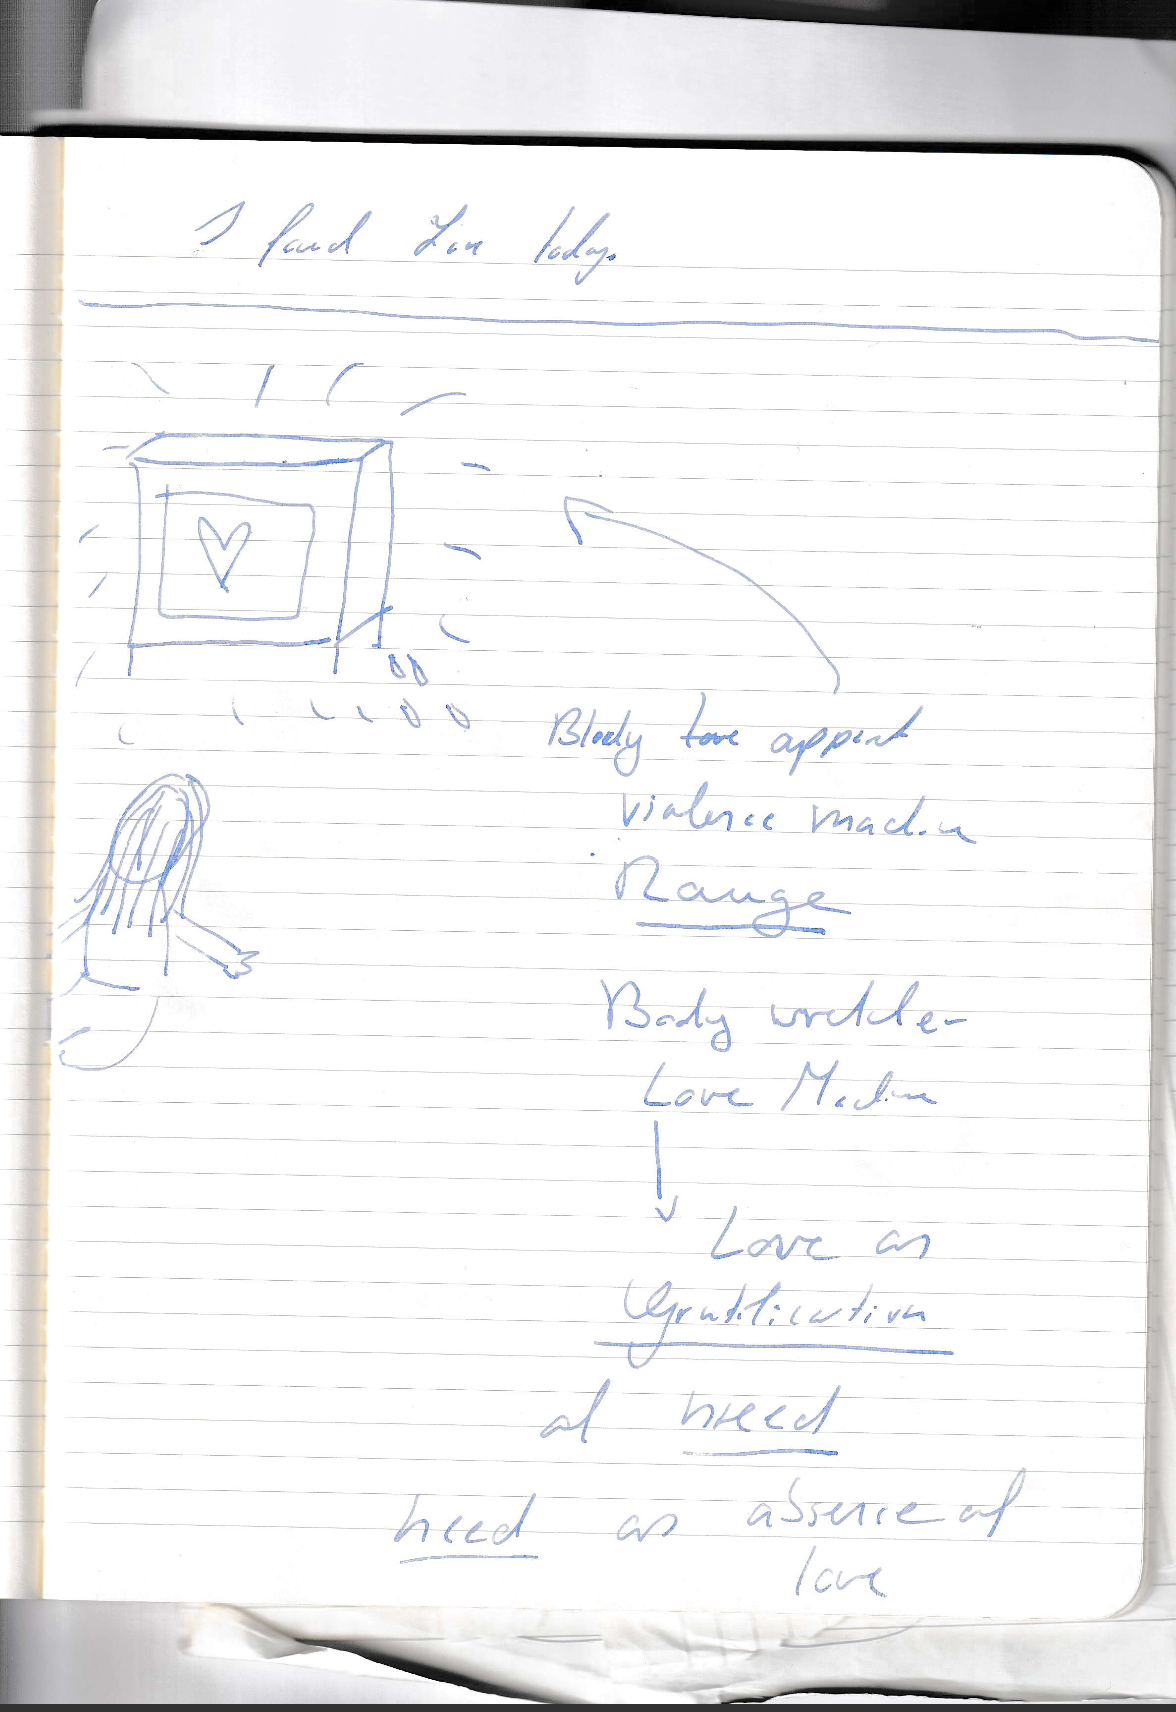 I found Love today.
Body love
violence machine
Range
Body
Love Machine
Love as
Gratification
of need
need as absence of
love